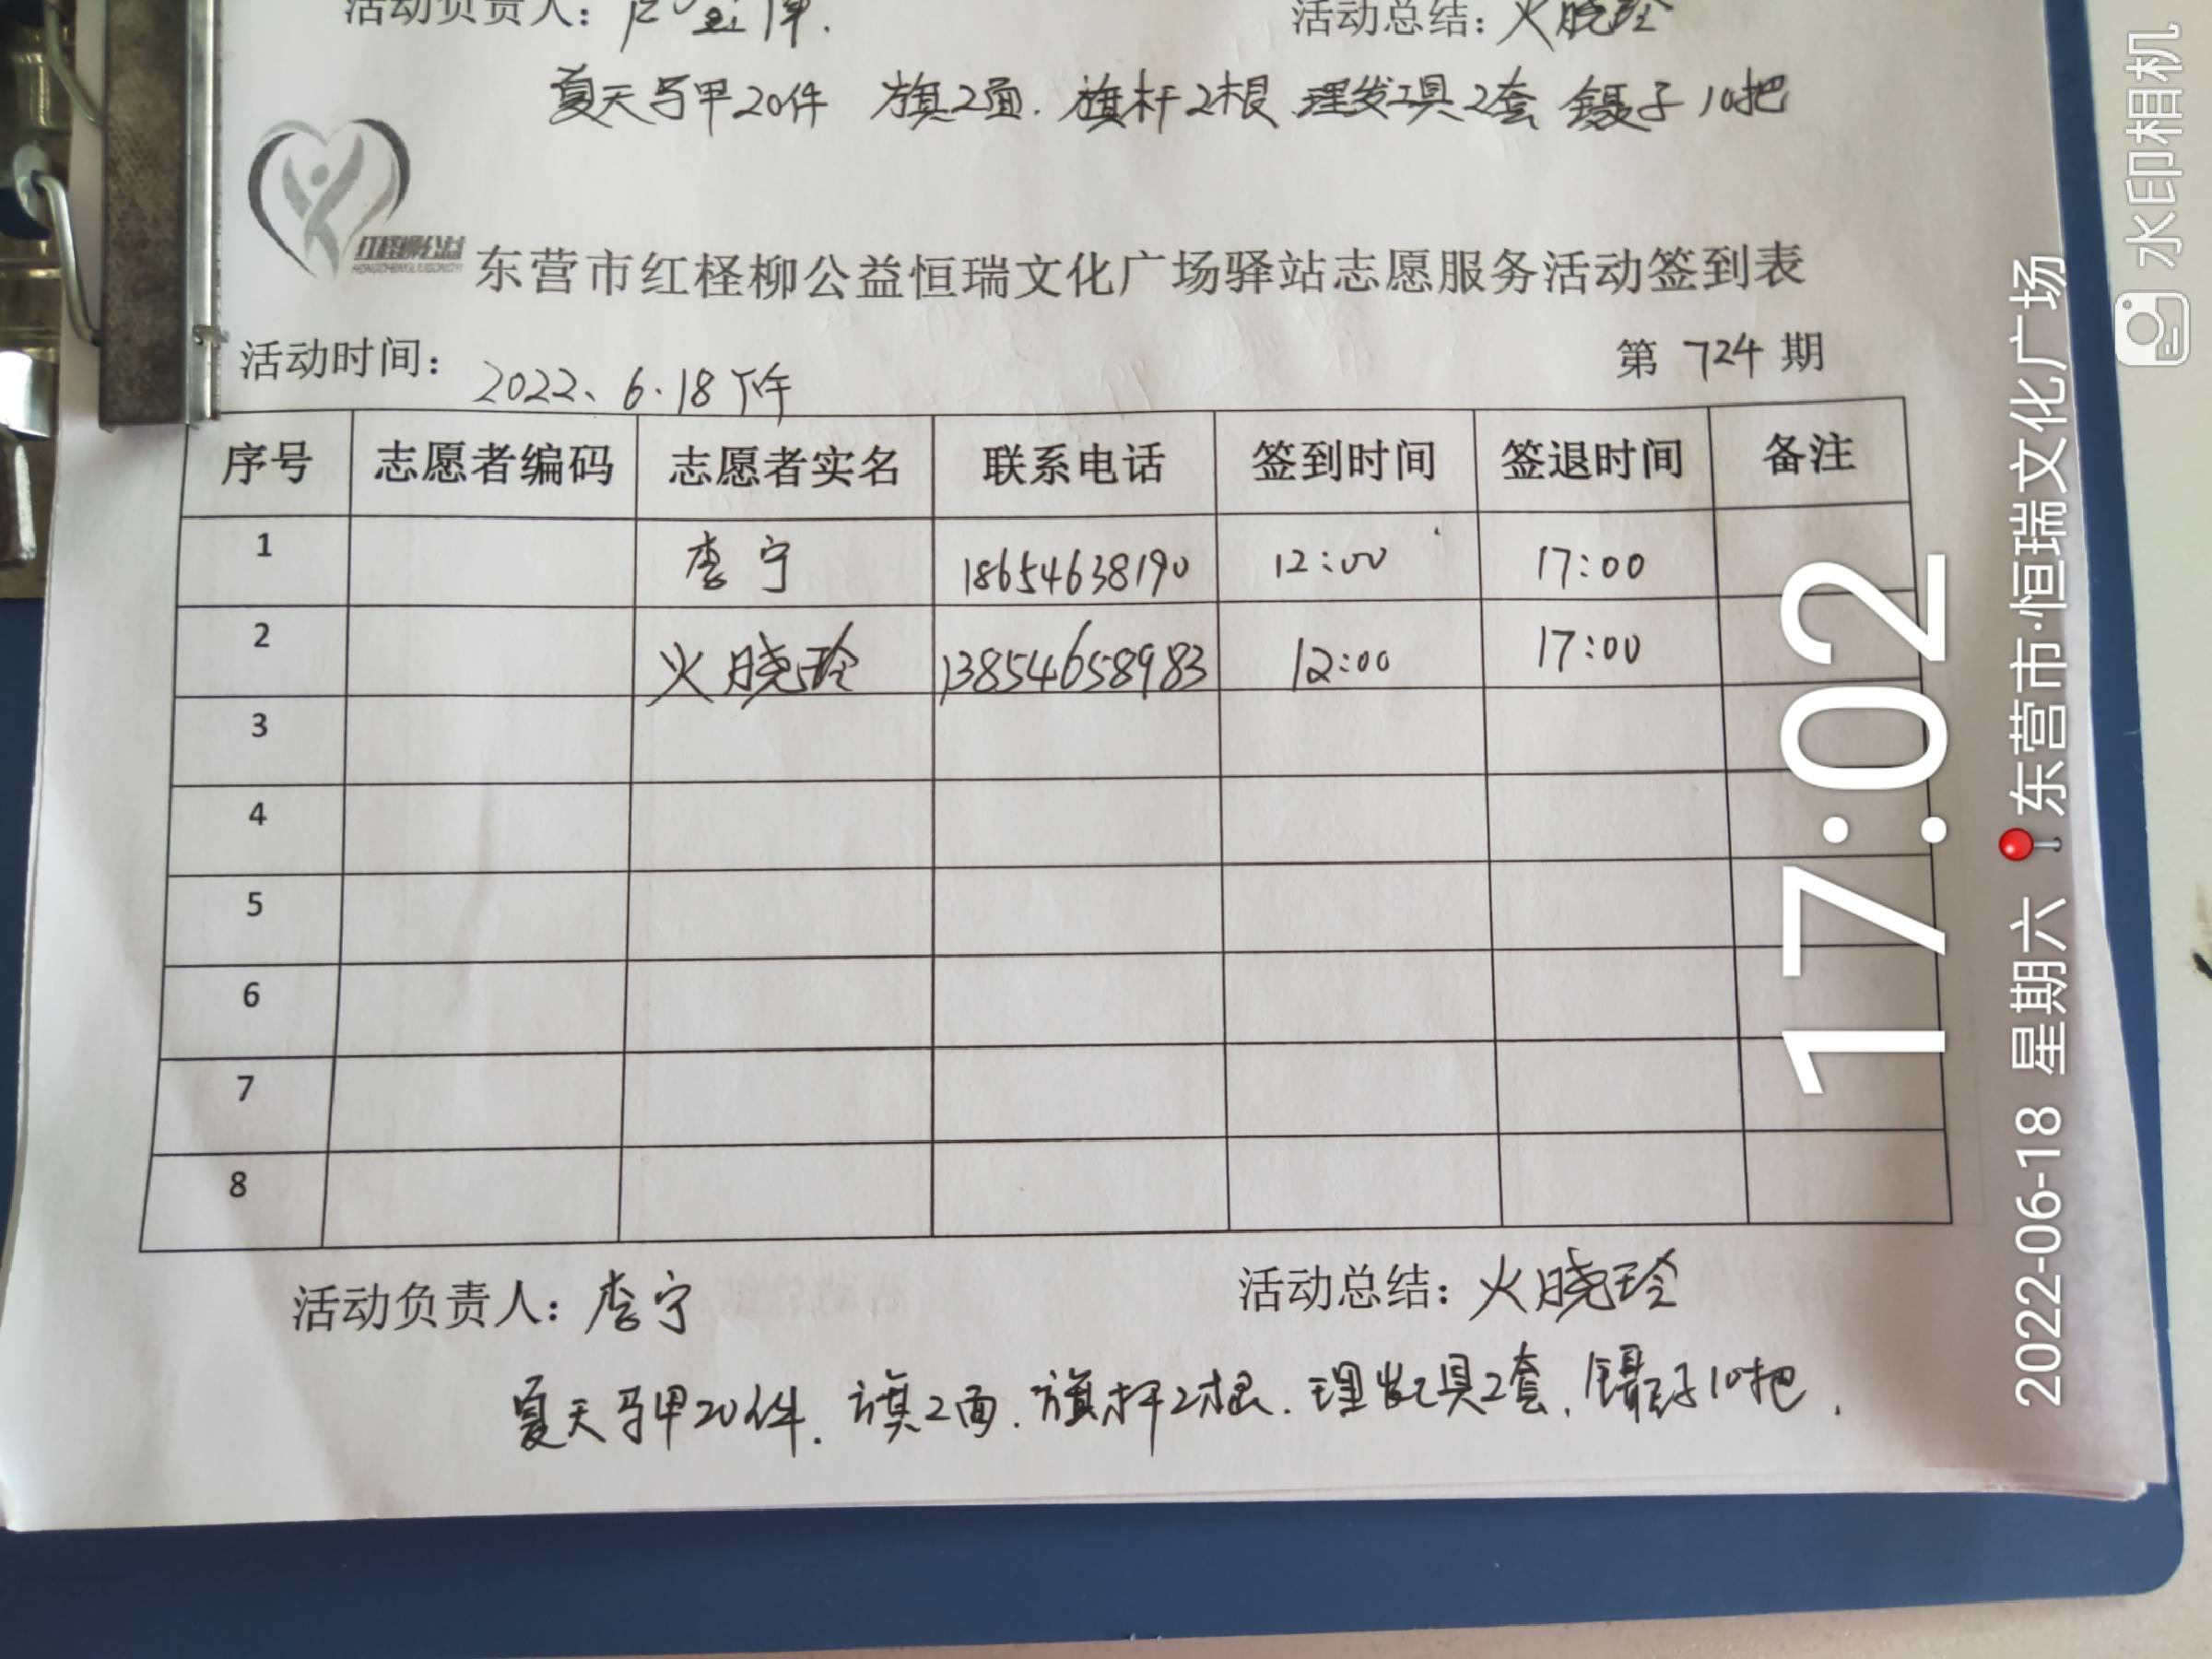 活动负责人：
活动总结：火晓玲
夏天马甲20件 旗2面. 旗杆2根 理发工具2套 镊子10把
红柽柳公益
HONGCHENGLIUGONGYI
东营市红柽柳公益恒瑞文化广场驿站志愿服务活动签到表
活动时间：2022、6.18下午 第 724 期
序号 志愿者编码 志愿者实名 联系电话 签到时间 签退时间 备注
1 李宁 18654638190 12:00 17:00
2 火晓玲 13854658983 12:00 17:00
3
4
5
6
7
8
活动负责人：李宁 活动总结：火晓玲
夏天马甲20件. 旗2面. 旗杆2根. 理发工具2套. 镊子10把.
17:02
2022-06-18 星期六 东营市·恒瑞文化广场
水印相机